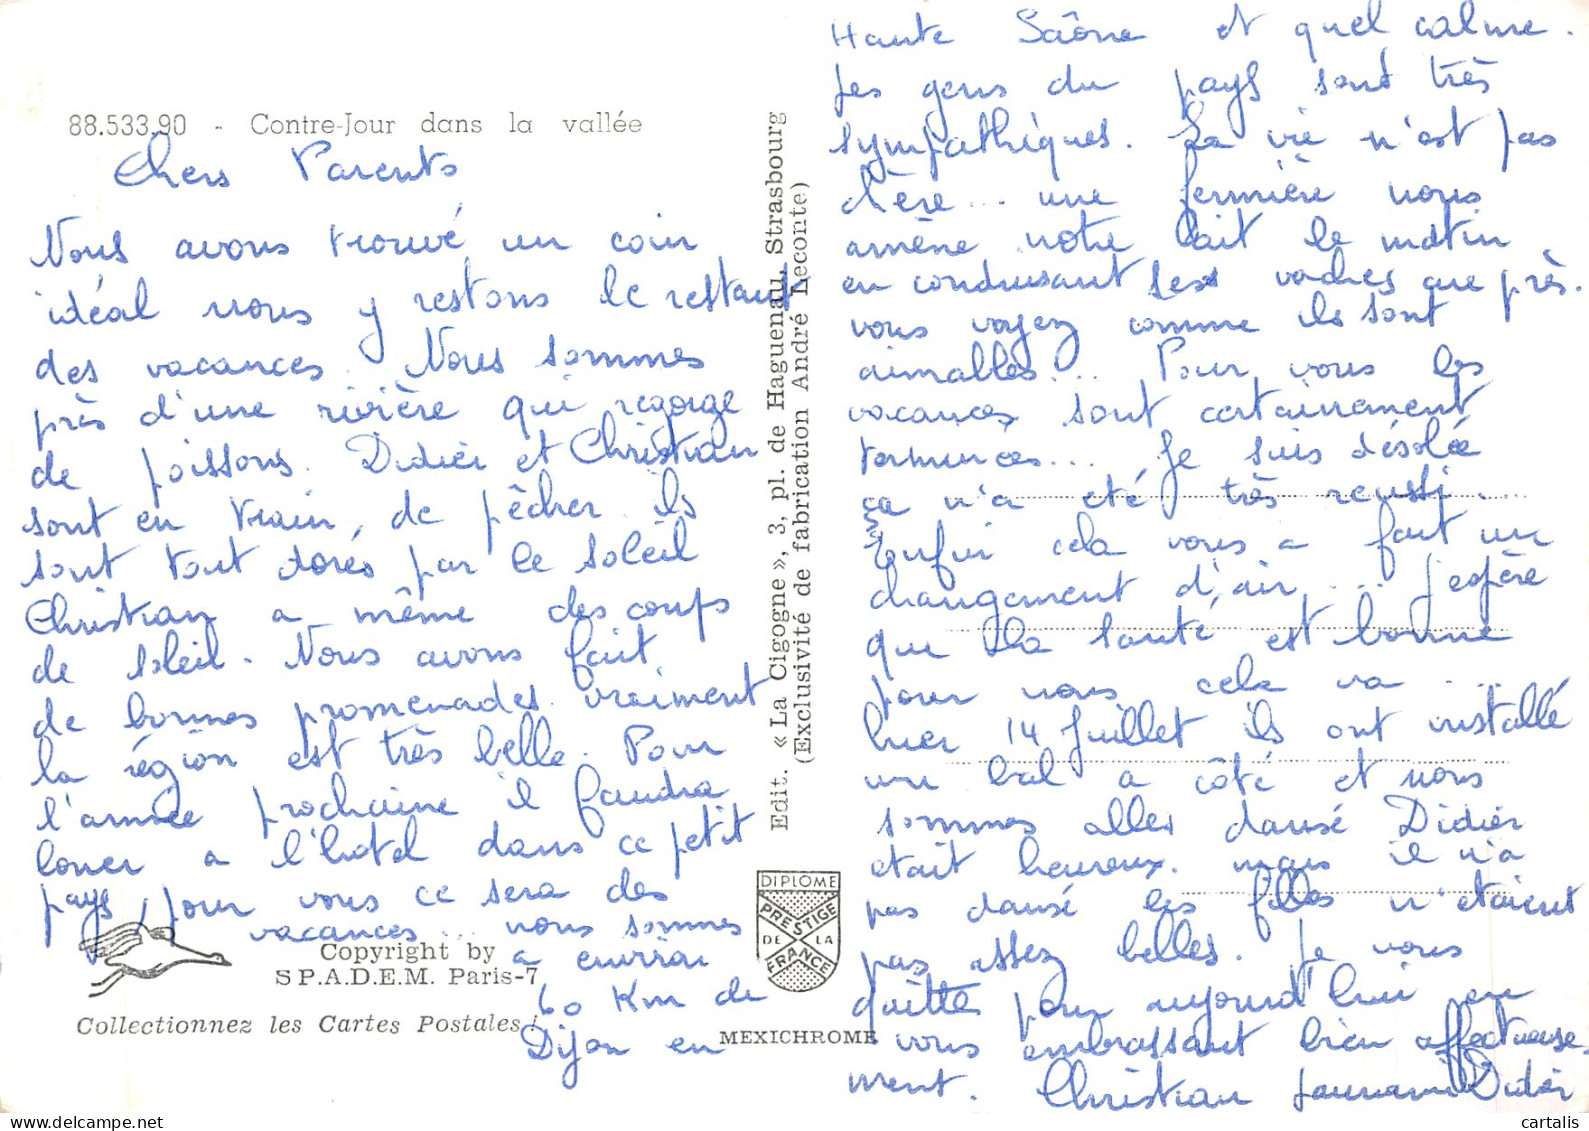 88.533.90 - Contre-Jour dans la vallée
Chers Parents
Nous avons trouvé un coin
idéal nous y restons le restant
des vacances. Nous sommes
près d'une rivière qui regorge
de poissons. Didier et Christian
sont en train, de pêcher ils
sont tout dorés par le soleil
Christian a même des coups
de soleil. Nous avons fait
de bonnes promenades. vraiment
la région est très belle. Pour
l'année prochaine il faudra
louer a l'hotel dans ce petit
pays, pour vous ce sera des
vacances... nous sommes
a environ
60 Km de
Dijon en
Haute Saône et quel calme.
Les gens du pays sont très
sympathiques. La vie n'est pas
chère... une fermière nous
amène notre lait le matin
en conduisant ses vaches que près.
vous voyez comme ils sont
aimables... Pour vous les
vacances sont certainement
terminées... Je suis désolée
ça n'a été très reussi....
Enfin cela vous a fait un
changement d'air... J'espère
que la santé est bonne
pour nous cela va....
hier 14 Juillet ils ont installé
un bal a côté et nous
sommes allés dansé Didier
etait heureux. mais il n'a
pas dansé les filles n'étaient
pas assez belles. Je vous
quitte pour aujourd'hui en
vous embrassant bien affectueuse
ment. Christian Didier
Edit. « La Cigogne », 3, pl. de Haguenau, Strasbourg
(Exclusivité de fabrication André Leconte)
DIPLOME
PRESTIGE
DE LA
FRANCE
Copyright by
SP.A.D.E.M. Paris-7
Collectionnez les Cartes Postales!
MEXICHROME
cartalis
delcampe.net